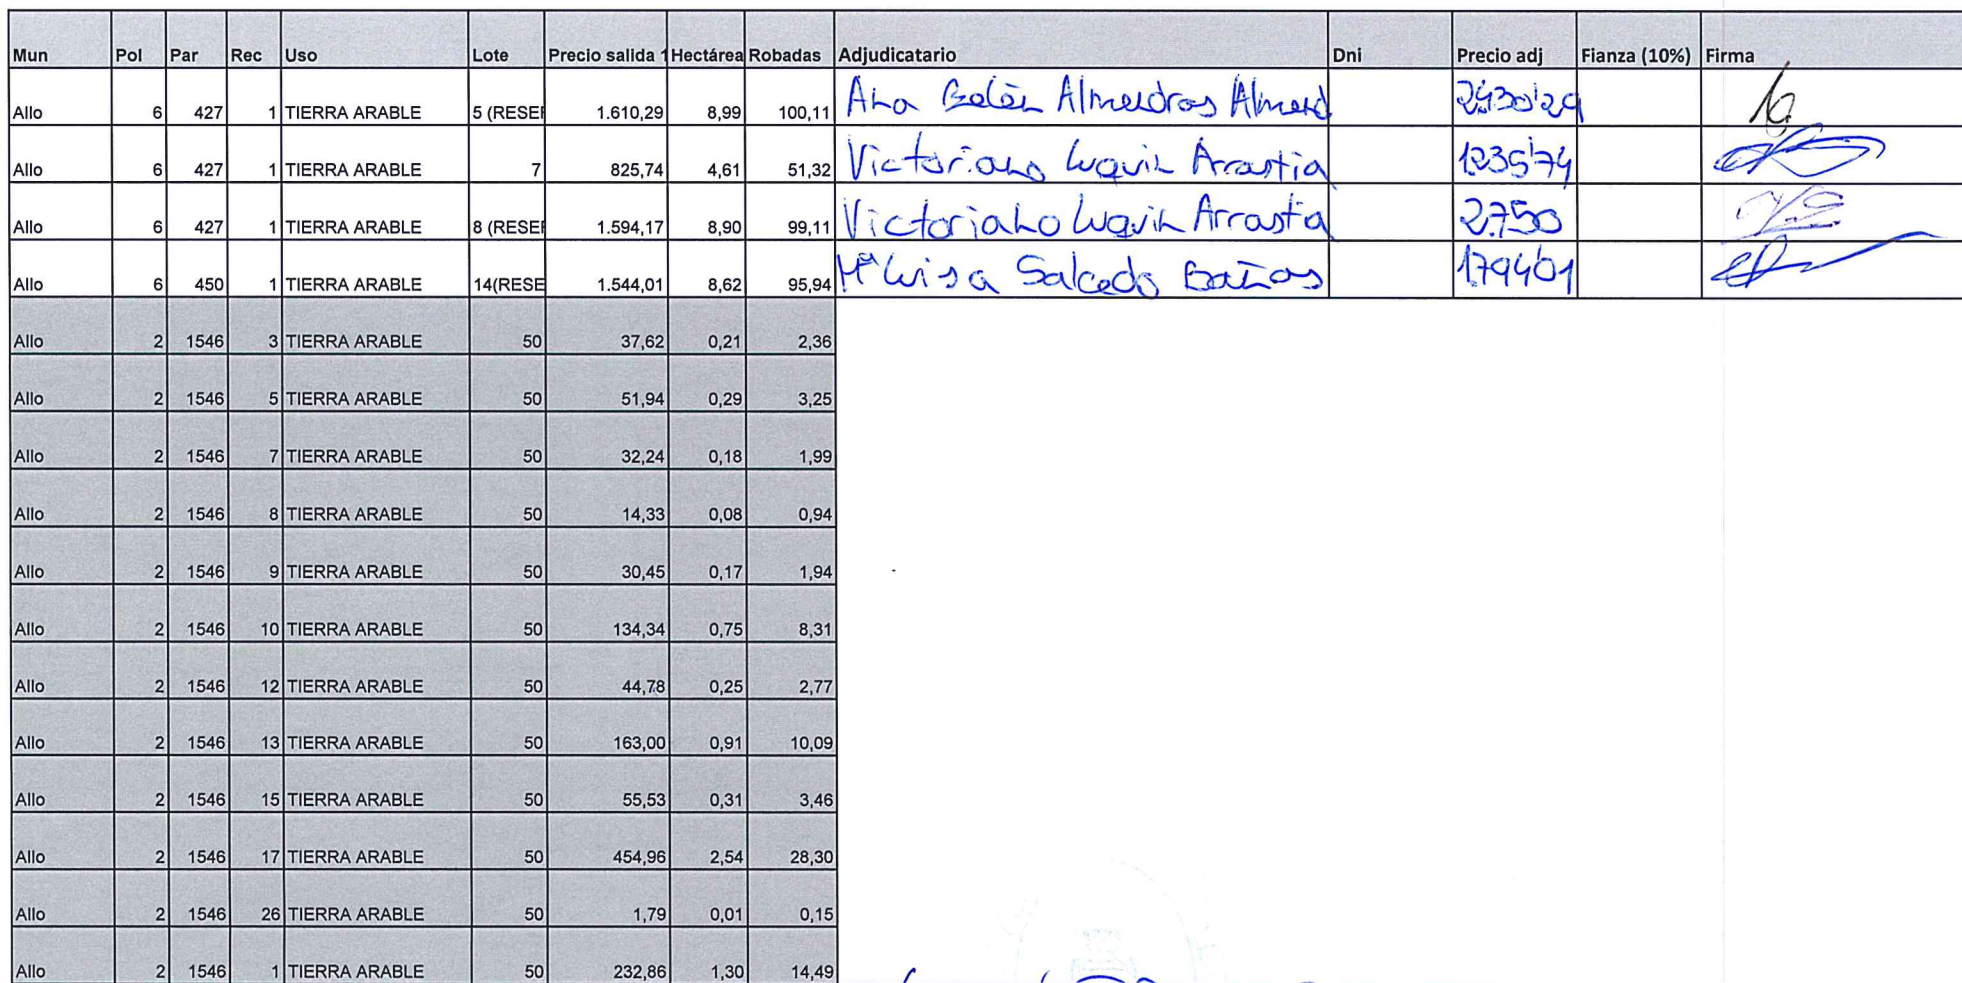 Mun Pol Par Rec Uso Lote Precio salida 1 Hectárea Robadas Adjudicatario Dni Precio adj Fianza (10%) Firma
Allo 6 427 1 TIERRA ARABLE 5 (RESE 1.610,29 8,99 100,11 Ana Belén Almendros Almend 2.430'29
Allo 6 427 1 TIERRA ARABLE 7 825,74 4,61 51,32 Victoriano Luquin Arrastia 1.235'74
Allo 6 427 1 TIERRA ARABLE 8 (RESE 1.594,17 8,90 99,11 Victoriano Luquin Arrastia 2.750
Allo 6 450 1 TIERRA ARABLE 14(RESE 1.544,01 8,62 95,94 Mª Luisa Salcedo Baños 1.794'01
Allo 2 1546 3 TIERRA ARABLE 50 37,62 0,21 2,36
Allo 2 1546 5 TIERRA ARABLE 50 51,94 0,29 3,25
Allo 2 1546 7 TIERRA ARABLE 50 32,24 0,18 1,99
Allo 2 1546 8 TIERRA ARABLE 50 14,33 0,08 0,94
Allo 2 1546 9 TIERRA ARABLE 50 30,45 0,17 1,94
Allo 2 1546 10 TIERRA ARABLE 50 134,34 0,75 8,31
Allo 2 1546 12 TIERRA ARABLE 50 44,78 0,25 2,77
Allo 2 1546 13 TIERRA ARABLE 50 163,00 0,91 10,09
Allo 2 1546 15 TIERRA ARABLE 50 55,53 0,31 3,46
Allo 2 1546 17 TIERRA ARABLE 50 454,96 2,54 28,30
Allo 2 1546 26 TIERRA ARABLE 50 1,79 0,01 0,15
Allo 2 1546 1 TIERRA ARABLE 50 232,86 1,30 14,49